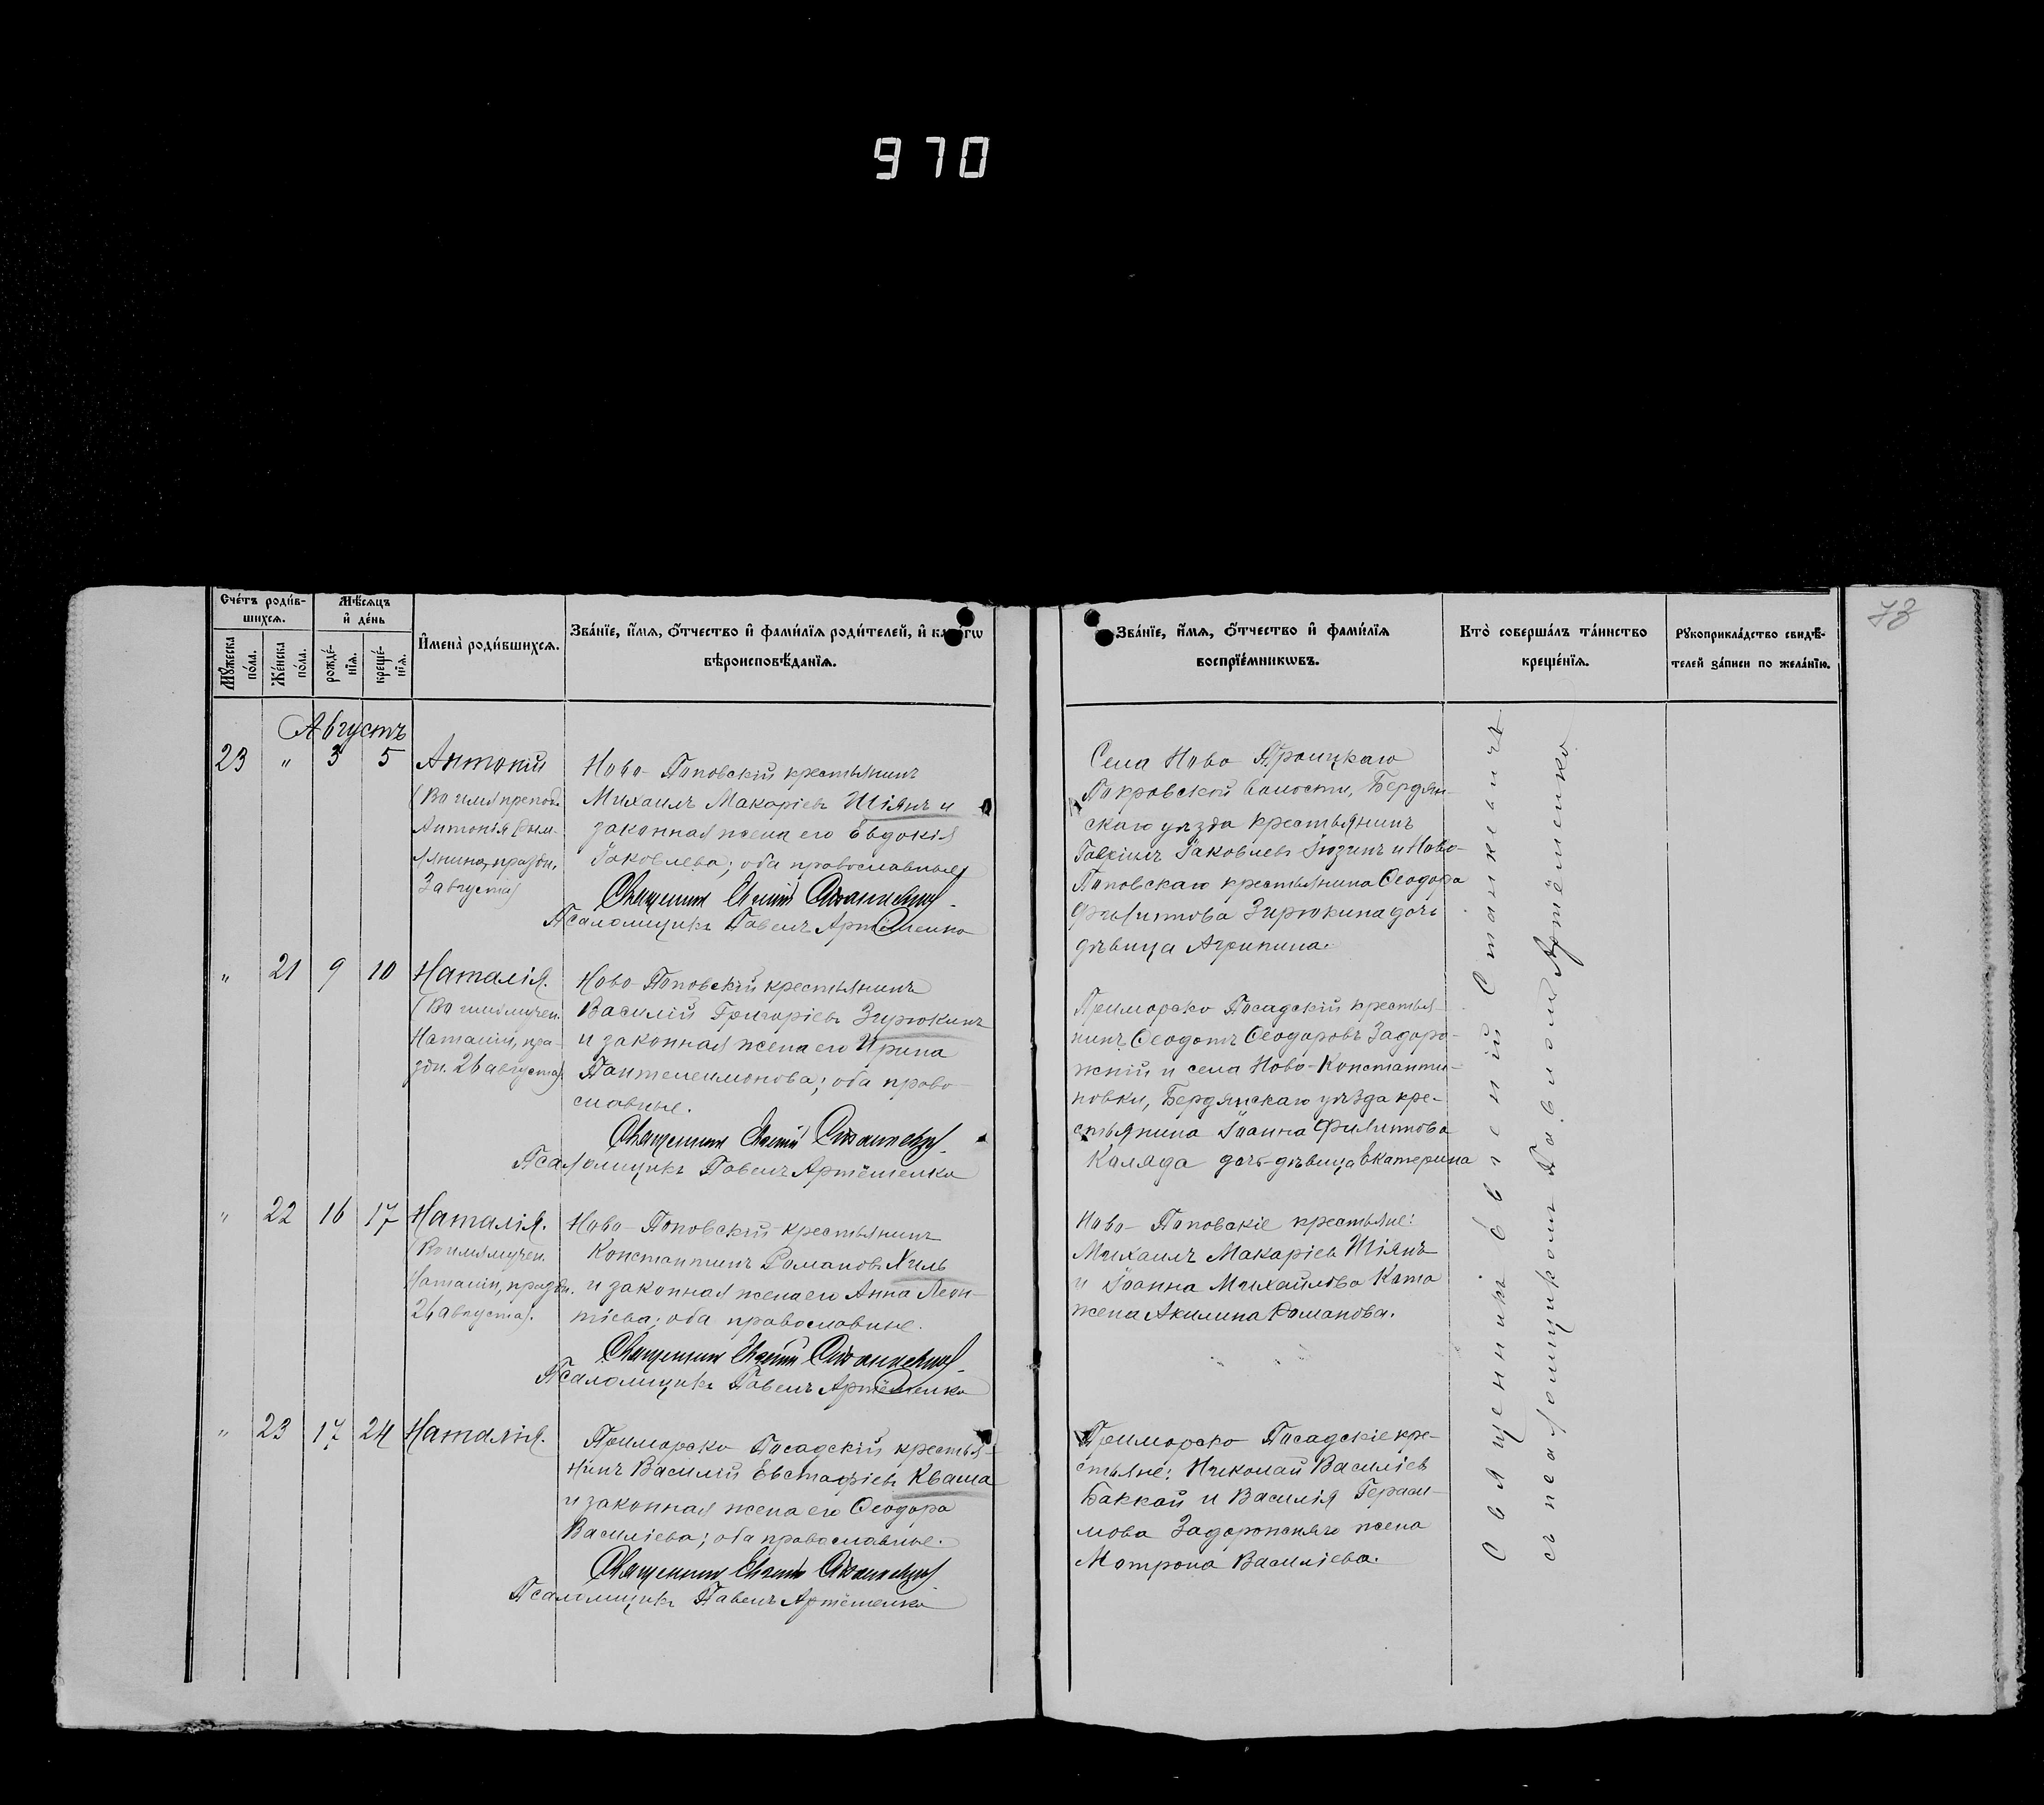 970
73
Счетъ родив-
шихся.
Мѣсяцъ
и день
Мужеска
пола.
Женска
пола.
рожде-
нія.
креще-
нія.
Имена родившихся.
Званіе, имя, отчество и фамилія родителей, и какого
вѣроисповѣданія.
Званіе, имя, отчество и фамилія
воспріемниковъ.
Кто совершалъ таинство
крещенія.
Рукоприкладство свидѣ-
телей записи по желанію.
Августъ
23 " 3 5 Антоній
(Во имя препод.
Антонія Рим-
лянина, праздн.
3 августа)
Ново-Поповскій крестьянинъ
Михаилъ Макаріевъ Шіянъ и
законная жена его Евдокія
Іаковлева; оба православные
Священникъ Станкевичъ
Псаломщикъ Павелъ Артёменко
Села Ново Троицкаго
Покровской волости, Бердян-
скаго уѣзда крестьянинъ
Гавріилъ Іаковлевъ и Ново-
Поповскаго крестьянина Ѳеодора
Филиппова Зирюкина дочь
дѣвица Агрипина.
" 21 9 10 Наталія.
(Во имя мучен.
Наталіи, пра-
здн. 26 августа).
Ново-Поповскій крестьянинъ
Василій Григоріевъ Зирюкинъ
и законная жена его Ирина
Пантелеимонова; оба право-
славные.
Священникъ Станкевичъ
Псаломщикъ Павелъ Артёменко
Приморско Посадскій крестья-
нинъ Ѳеодотъ Ѳеодоровъ Задоро-
жній и села Ново-Константи-
новки, Бердянскаго уѣзда кре-
стьянина Іоанна Филиппова
Каляда дочь-дѣвица Екатерина
" 22 16 17 Наталія.
(Во имя мучен.
Наталіи, праздн.
26 августа).
Ново-Поповскій крестьянинъ
Константинъ Романовъ Хиль
и законная жена его Анна Леон-
тіева; оба православные.
Священникъ Станкевичъ
Псаломщикъ Павелъ Артёменко
Ново-Поповскіе крестьяне:
Михаилъ Макаріевъ Шіянъ
и Іоанна Михайлова Ката
жена Акилина Романова.
" 23 17 24 Наталія.
Приморско Посадскій крестья-
нинъ Василій Евстафіевъ Кваша
и законная жена его Ѳеодора
Василіева; оба православные.
Священникъ Станкевичъ
Псаломщикъ Павелъ Артёменко
Приморско Посадскіе кре-
стьяне: Николай Василіевъ
Баккай и Василія Гераси-
мова Задорожняго жена
Матрона Василіева.
Священникъ Евгеній Станкевичъ
съ псаломщикомъ Павломъ Артёменко